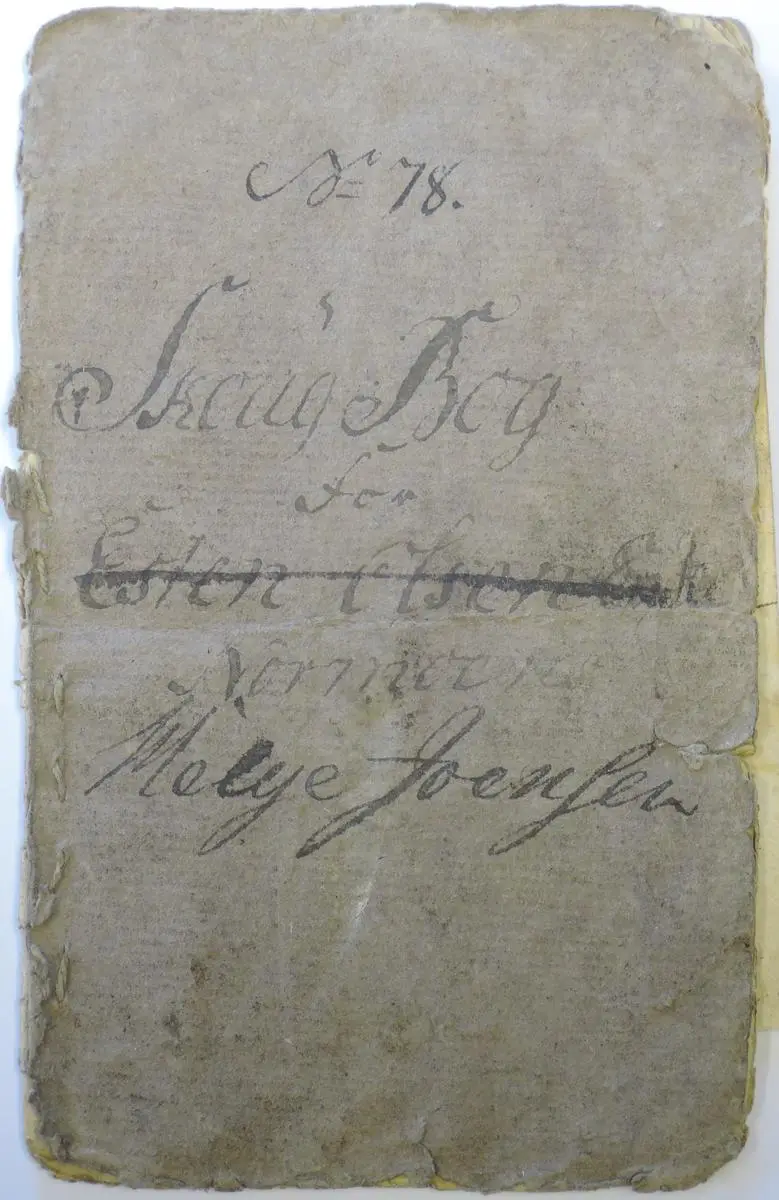 No 78.
Skoug Bog
for
Esten Olsen
Normoen
Helge Joensen